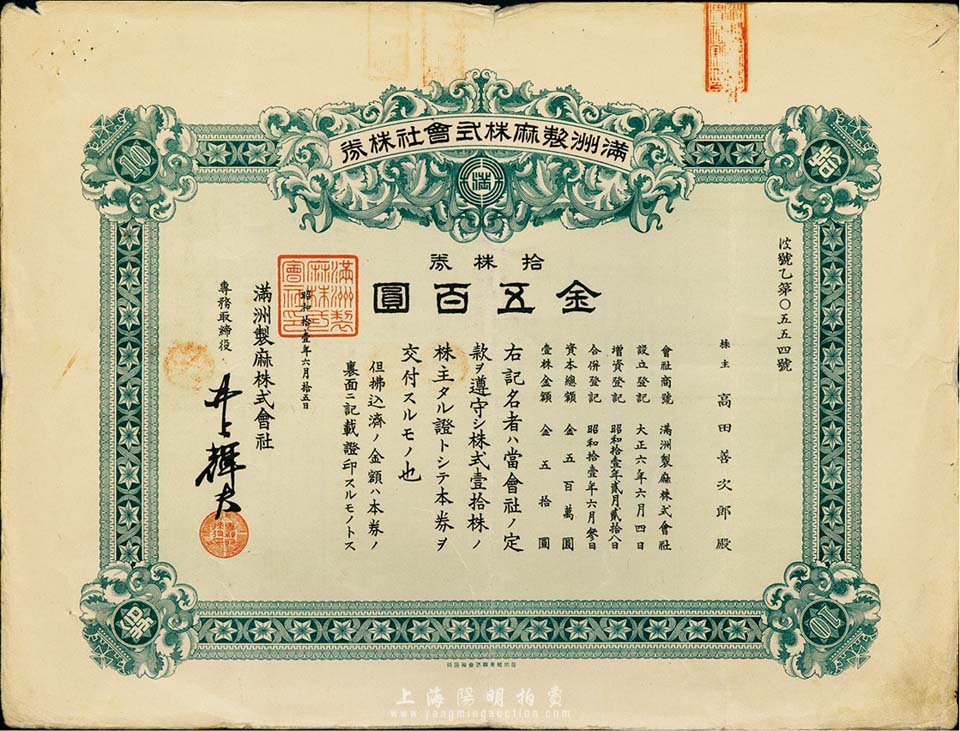 滿洲製麻株式會社株券
滿
10
拾
拾株券
金五百圓
乙第〇五五四號
株主 高田善次郎殿
會社商號 滿洲製麻株式會社
設立登記 大正六年六月四日
增資登記 昭和拾壹年貳月貳拾八日
合併登記 昭和拾壹年六月參日
資本總額 金五百萬圓
壹株金額 金五拾圓
右記名者ハ當會社ノ定
款ヲ遵守シ株式壹拾株ノ
株主タル證トシテ本券ヲ
交付スルモノ也
但拂込濟ノ金額ハ本券ノ
裏面ニ記載證印スルモノトス
昭和拾壹年六月拾五日
滿洲製麻株式會社
專務取締役 井上輝夫
滿洲製麻株式會社印
10
上海陽明拍賣
www.yangmingauction.com